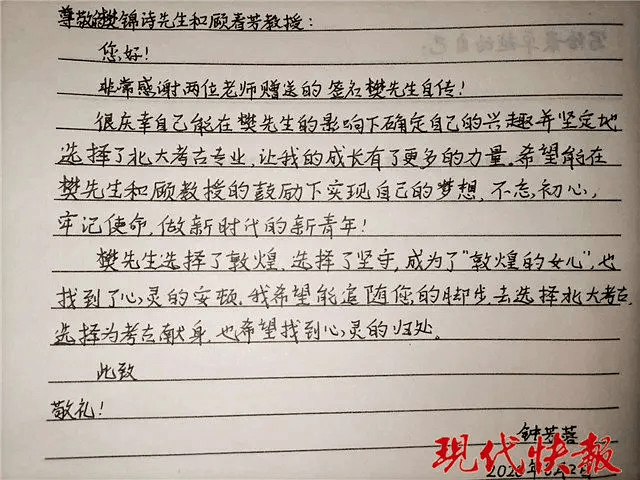 尊敬的樊锦诗先生和顾春芳教授：
您好！
非常感谢两位老师赠送的签名樊先生自传！
很庆幸自己能在樊先生的影响下确定自己的兴趣并坚定地
选择了北大考古专业，让我的成长有了更多的力量。希望能在
樊先生和顾教授的鼓励下实现自己的梦想，不忘初心，
牢记使命，做新时代的新青年！
樊先生选择了敦煌，选择了坚守，成为了“敦煌的女儿”，也
找到了心灵的安顿。我希望能追随您的脚步，去选择北大考古，
选择为考古献身，也希望找到心灵的归处。
此致
敬礼！
钟芳蓉
现代快報